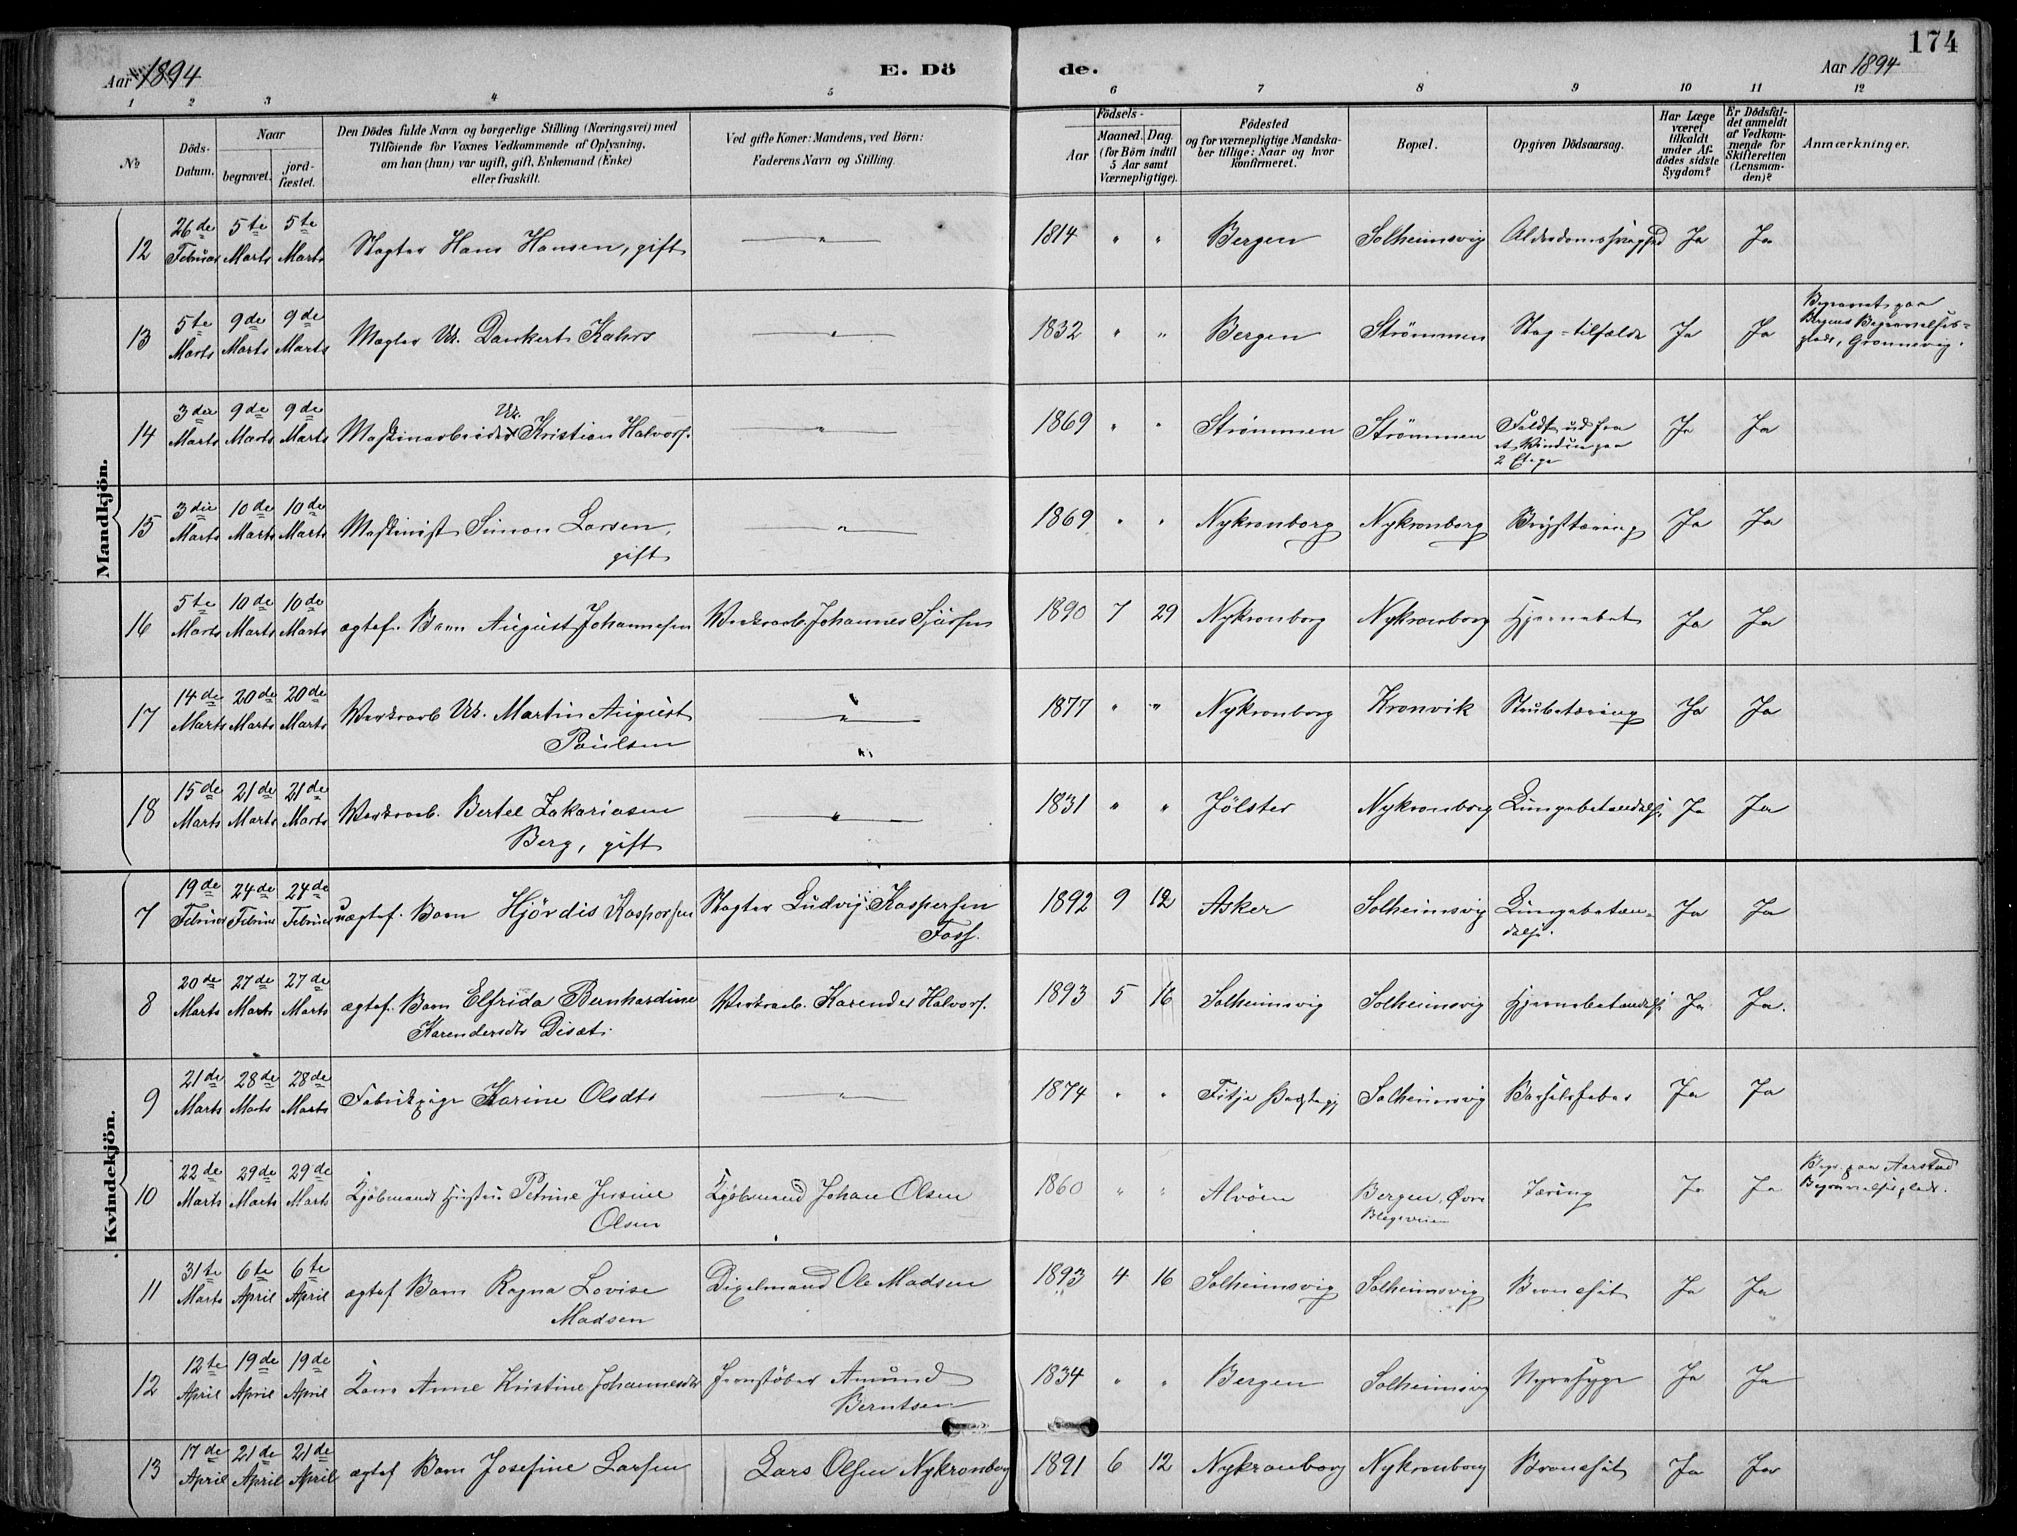 174
Aar 1894 E. Dö de. Aar 1894
1 2 3 4 5 6 7 8 9 10 11 12
№
Döds-Datum.
Naar
begravet.
jord-fæstet.
Den Dödes fulde Navn og borgerlige Stilling (Næringsvei) med
Tilföiende for Voxnes Vedkommende af Oplysning,
om han (hun) var ugift, gift, Enkemand (Enke)
eller fraskilt.
Ved gifte Koner: Mandens, ved Börn:
Faderens Navn og Stilling.
Födsels-
Aar
Maaned. Dag.
(for Börn indtil
5 Aar samt
Værnepligtige).
Födested
og for værnepligtige Mandska-
ber tillige: Naar og hvor
konfirmeret.
Bopæl.
Opgiven Dödsaarsag.
Har Læge
været
tilkaldt
under Af-
dödes sidste
Sygdom?
Er Dödsfal-
det anmeldt
af Vedkom-
mende for
Skifteretten
(Lensman-
den)?
Anmærkninger.
Mandkjön.
12 26de Februar 5te Marts 5te Marts Slagter Hans Hansen, gift " 1814 " " Bergen Solheimsvig Ja Ja
13 5te Marts 9de Marts 9de Marts Mægler Uk. Dankert Kahrs " 1832 " " Bergen Strömmen Slag-tilfælde Ja Ja Begravet paa
Bergens Begravelses-
plads, Grønnevig.
14 3die Marts 9de Marts 9de Marts Maskinarbeider Uk. Kristian Halvors. " 1869 " " Strömmen Strömmen Faldt ud fra
et Vindu paa
2 Etage Ja Ja
15 3die Marts 10de Marts 10de Marts Maskinist Simon Larsen,
gift " 1869 " " Nykronborg Nykronborg Brysttæring Ja Ja
16 5te Marts 10de Marts 10de Marts ægtef. Barn August Johannesen Værksarb. Johannes Sjursen 1890 7 29 Nykronborg Nykronborg Ja Ja
17 14de Marts 20de Marts 20de Marts Værksarb Uk. Martin August
Paulsen " 1877 " " Nykronborg Kronvik Strubetæring Ja Ja
18 15de Marts 21de Marts 21de Marts Værksarb. Bertel Zakariasen
Berg, gift " 1831 " " Jölster Nykronborg Lungebetændelse Ja Ja
Kvindekjön.
7 19de Februar 24de Februar 24de Februar uægtef. Barn Hjördis Kaspersen Slagter Ludvig Kaspersen
Foss. 1892 9 12 Asker Solheimsvig Lungebetæn-
delse. Ja Ja
8 20de Marts 27de Marts 27de Marts ægtef. Barn Elfrida Bernhardine
Karendersdtr Værksarb. Karender Halvors. 1893 5 16 Solheimsvig Solheimsvig Hjernebetændelse Ja Ja.
9 21de Marts 28de Marts 28de Marts Fabrikpige Karine Olsdtr " 1874 " " Fitje Solheimsvig Barselfeber Ja Ja
10 22de Marts 29de Marts 29de Marts Kjöbmands Hustru Petrine Jensine
Olsen Kjöbmand Johan Olsen 1860 " " Alvöen Bergen, Övre
Blegeveien Tæring Ja Ja Begr. paa Aarstad
Begravelsesplads.
11 31te Marts 6te April 6te April ægtef Barn Ragna Lovise
Madsen Ole Madsen 1893 4 16 Solheimsvig Solheimsvig Bronchit Ja Ja
12 12te April 19de April 19de April Kone Anne Kristine Johannesdtr Jernstöber Amund
Berntsen 1834 " " Bergen Solheimsvig Nyresyge Ja Ja
13 17de April 21de April 21de April ægtef Barn Josefine Larsen Lars Olsen Nykronborg 1891 6 12 Nykronborg Nykronborg Bronchit Ja Ja